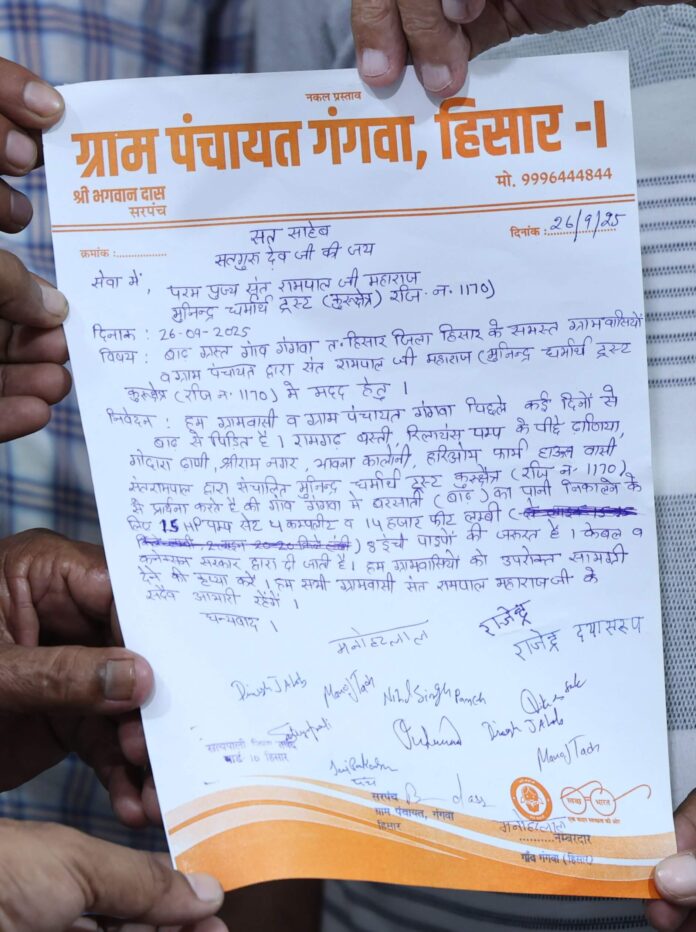 नकल प्रस्ताव
ग्राम पंचायत गंगवा, हिसार -I
श्री भगवान दास
सरपंच
मो. 9996444844
क्रमांक :
दिनांक : 26/9/25
सत साहेब
सतगुरु देव जी की जय
सेवा में,
परम पुज्य संत रामपाल जी महाराज
मुनिन्द्र धर्मार्थ ट्रस्ट (कुरुक्षेत्र) रजि. न. 1170)
दिनांक : 26-09-2025
विषय : बाढ ग्रस्त गांव गंगवा त. हिसार जिला हिसार के समस्त ग्रामवासियों
व ग्राम पंचायत द्वारा संत रामपाल जी महाराज (मुनिन्द्र धर्मार्थ ट्रस्ट
कुरुक्षेत्र (रजि न. 1170) मे मदद हेतु ।
निवेदन : हम ग्रामवासी व ग्राम पंचायत गंगवा पिछले कई दिनों से
बाढ से पिडित है । रामगढ़ बस्ती, रिलायंस पम्प के पीछे ढाणिया,
गोदारा ढाणी, श्रीराम नगर, भावना कालोनी, हरिओम फार्म हाऊस वासी
संतरामपाल द्वारा संचालित मुनिन्द्र धर्मार्थ ट्रस्ट कुरुक्षेत्र (रजि न. 1170)
से प्रार्थना करते है की गांव गंगवा मे बरसाती (बाढ) का पानी निकालने के
लिए 15 HP पम्प सेट 4 कम्पलीट व 14 हजार फीट लम्बी
8 इंची पाइपों की जरुरत है । केबल व
कनेक्शन सरकार द्वारा दी जाती है। हम ग्रामवासियों को उपरोक्त सामग्री
देने की कृप्या करें । हम सभी ग्रामवासी संत रामपाल महाराज जी के
सदैव आभारी रहेंगे ।
धन्यवाद ।
मनोहरलाल
राजेन्द्र
राजेन्द्र दयासरुप
Dinesh JALab
Manoj Tadn
Singh Panch
Dinesh JALab
Manoj Tadn
वार्ड 10 हिसार
पंच
सरपंच
ग्राम पंचायत, गंगवा
हिसार
स्वच्छ भारत
एक कदम स्वच्छता की ओर
मनोहरलाल
नम्बरदार
गाँव गंगवा (हिसार)